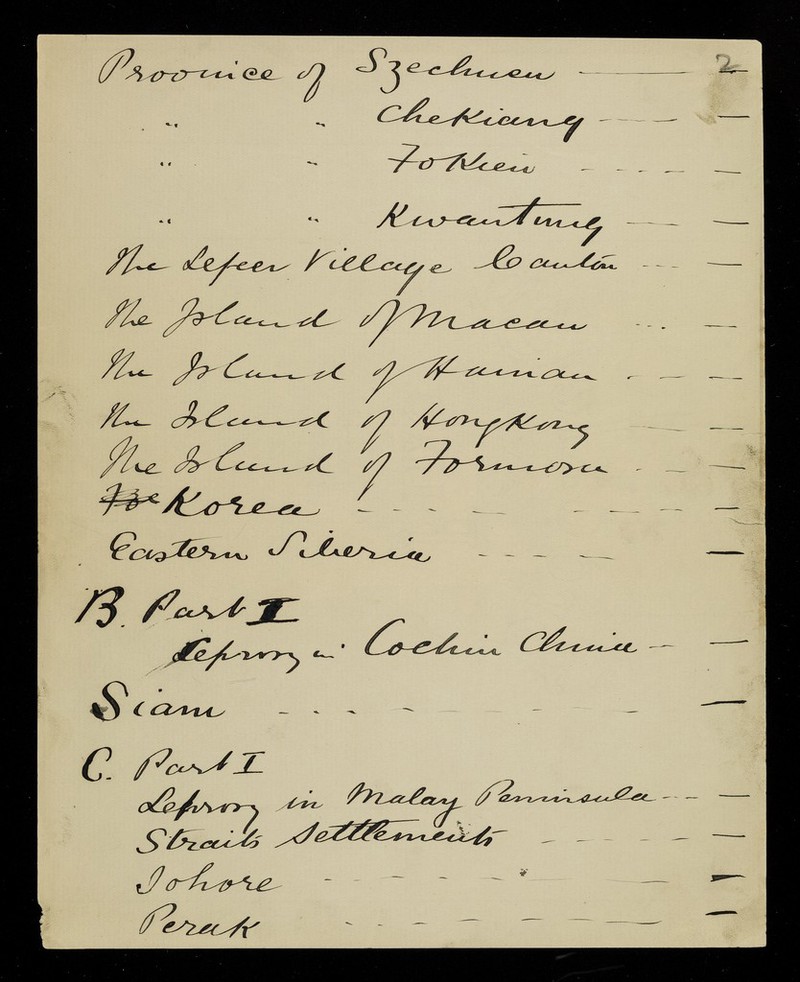 Province of Szechuen — 2
" " CheKiang — —
" " FoKien - - - - —
" " Kwantung — —
The Leper Village Canton - - —
The Island of Macau ... —
The Island of Hainan - — —
The Island of HongKong — —
The Island of Formosa - — —
Korea - - - - - - - —
Eastern Siberia - - - - —
B. Part I
Leprosy in Cochin China — —
Siam - - - - - - —
C. Part I
Leprosy in Malay Peninsula - - —
Straits Settlements - - - - —
Johore - - - - - - —
Perak - - - - - - —